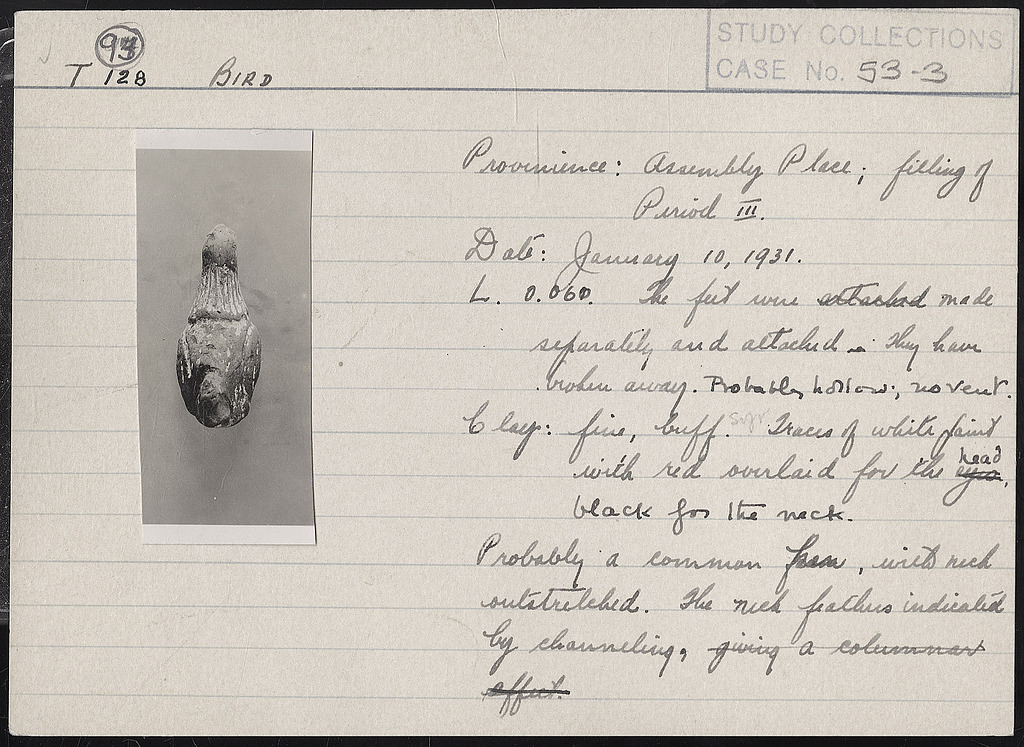 93
T 128 BIRD
STUDY COLLECTIONS
CASE No. 53-3
Provinience: Assembly Place; filling of
Period III.
Date: January 10, 1931.
L. 0.060. The feet were attached made
separately and attached. They have
broken away. Probably hollow; no vent.
Clay: fine, buff. Traces of white paint
with red overlaid for the eyes, head
black for the neck.
Probably a common, with neck
outstretched. The neck feathers indicated
by channeling, giving a columnar
effect.